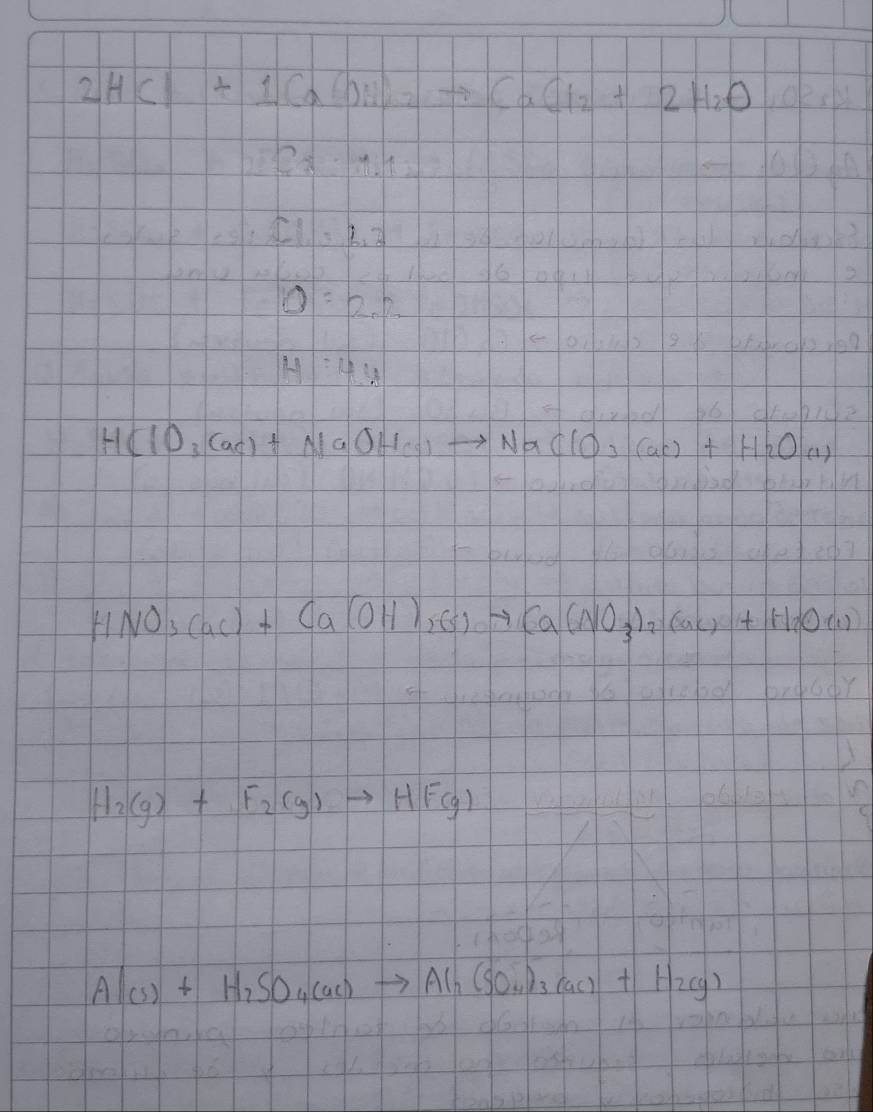 2HCl + 1Ca(OH)2 → CaCl2 + 2H2O
Ca = 1.1
Cl = 2.2
O = 2.2
H = 4.4
HClO3(ac) + NaOH(s) → NaClO3(ac) + H2O(l)
HNO3(ac) + Ca(OH)2(s) → Ca(NO3)2(ac) + H2O(l)
H2(g) + F2(g) → HF(g)
Al(s) + H2SO4(ac) → Al2(SO4)3(ac) + H2(g)